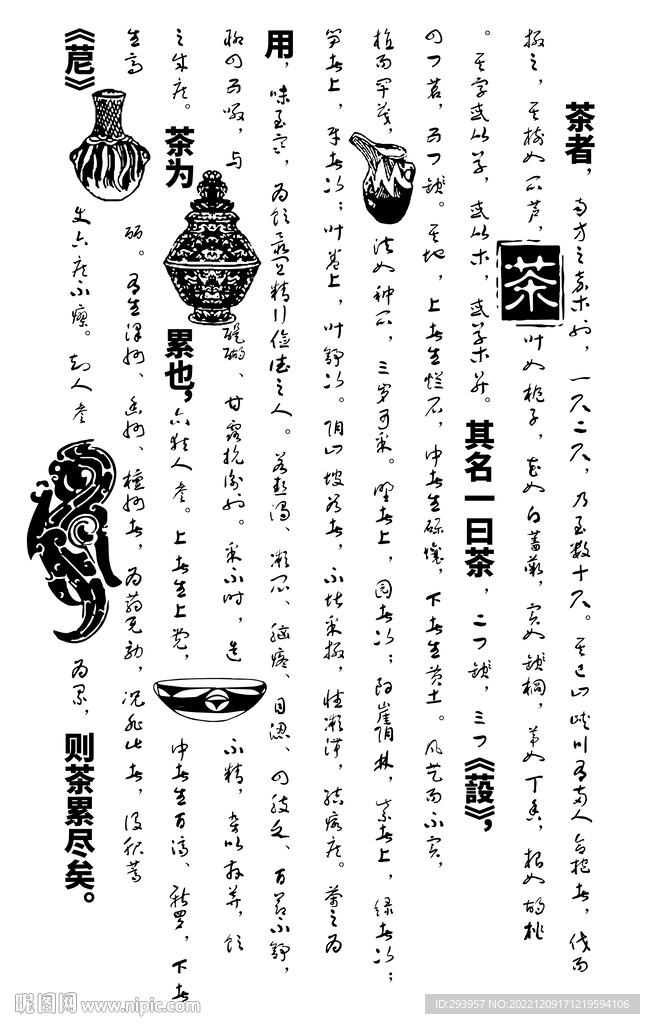 茶者，南方之嘉木也，一尺二尺，乃至数十尺。其巴山峡川有两人合抱者，伐而
掇之，其树如瓜芦，叶如栀子，花如白蔷薇，实如榈，蒂如丁香，根如胡桃
茶
。其字或从草，或从木，或草木并。其名一曰茶，二曰，三曰《蔎》，
四曰茗，五曰。其地，上者生烂石，中者生砾壤，下者生黄土。凡艺而不实，
植而罕茂，法如种瓜，三岁可采。野者上，园者次；阳崖阴林，紫者上，绿者次；
笋者上，牙者次；叶卷上，叶舒次。阴山坡谷者，不堪采掇，性凝滞，结瘕疾。茶之为
用，味至寒，为饮最宜精行俭德之人。若热渴、凝闷、脑疼、目涩、四肢乏、百节不舒，
聊四五啜，与醍醐、甘露抗衡也。采不时，造不精，杂以卉莽，饮
之成疾。茶为累也，亦犹人参。上者生上党，中者生百济、新罗，下者
生高丽。有生泽州、幽州、檀州者，为药无效，况非此者，设服荠
《苨》使六疾不瘳。知人参为累，则茶累尽矣。
昵图网 www.nipic.com
ID:293957 NO:20221209171219594106